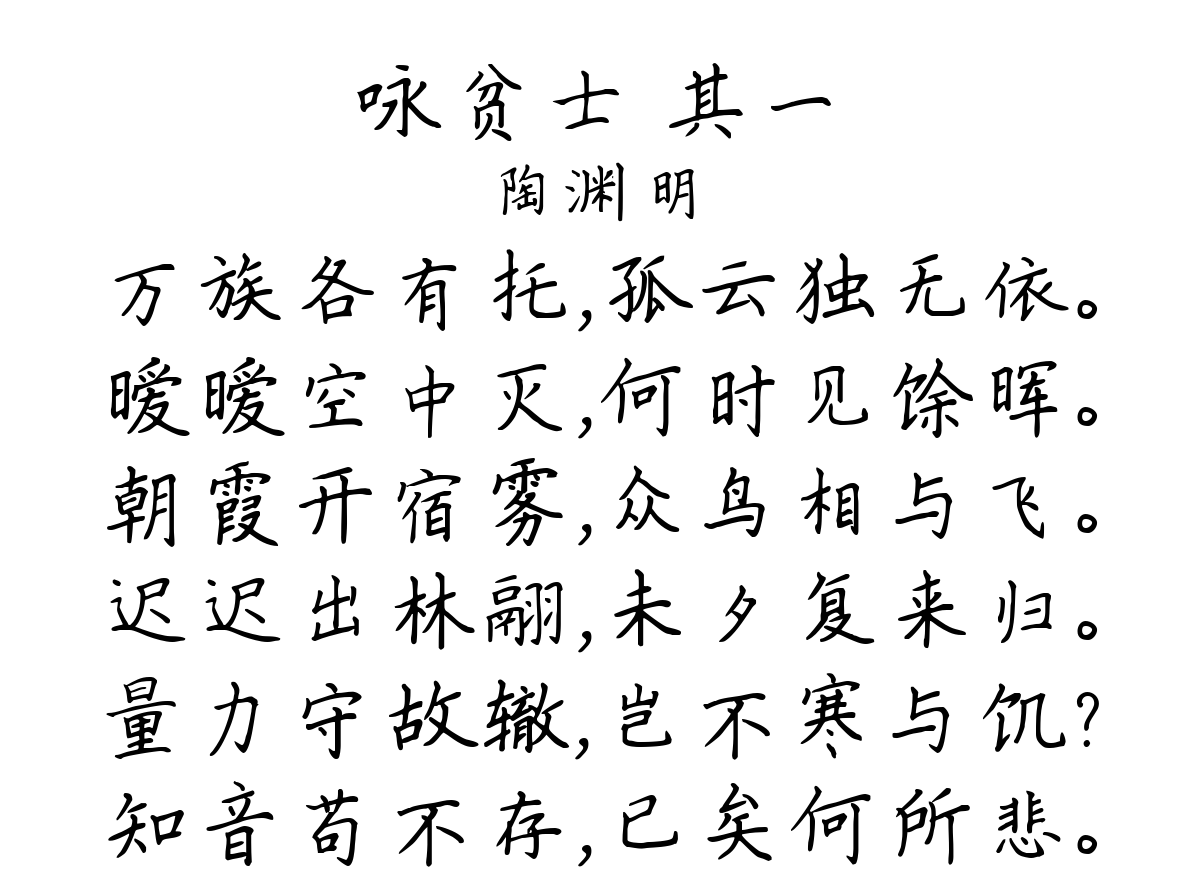 咏贫士 其一
陶渊明
万族各有托,孤云独无依。
暧暧空中灭,何时见馀晖。
朝霞开宿雾,众鸟相与飞。
迟迟出林翮,未夕复来归。
量力守故辙,岂不寒与饥?
知音苟不存,已矣何所悲。